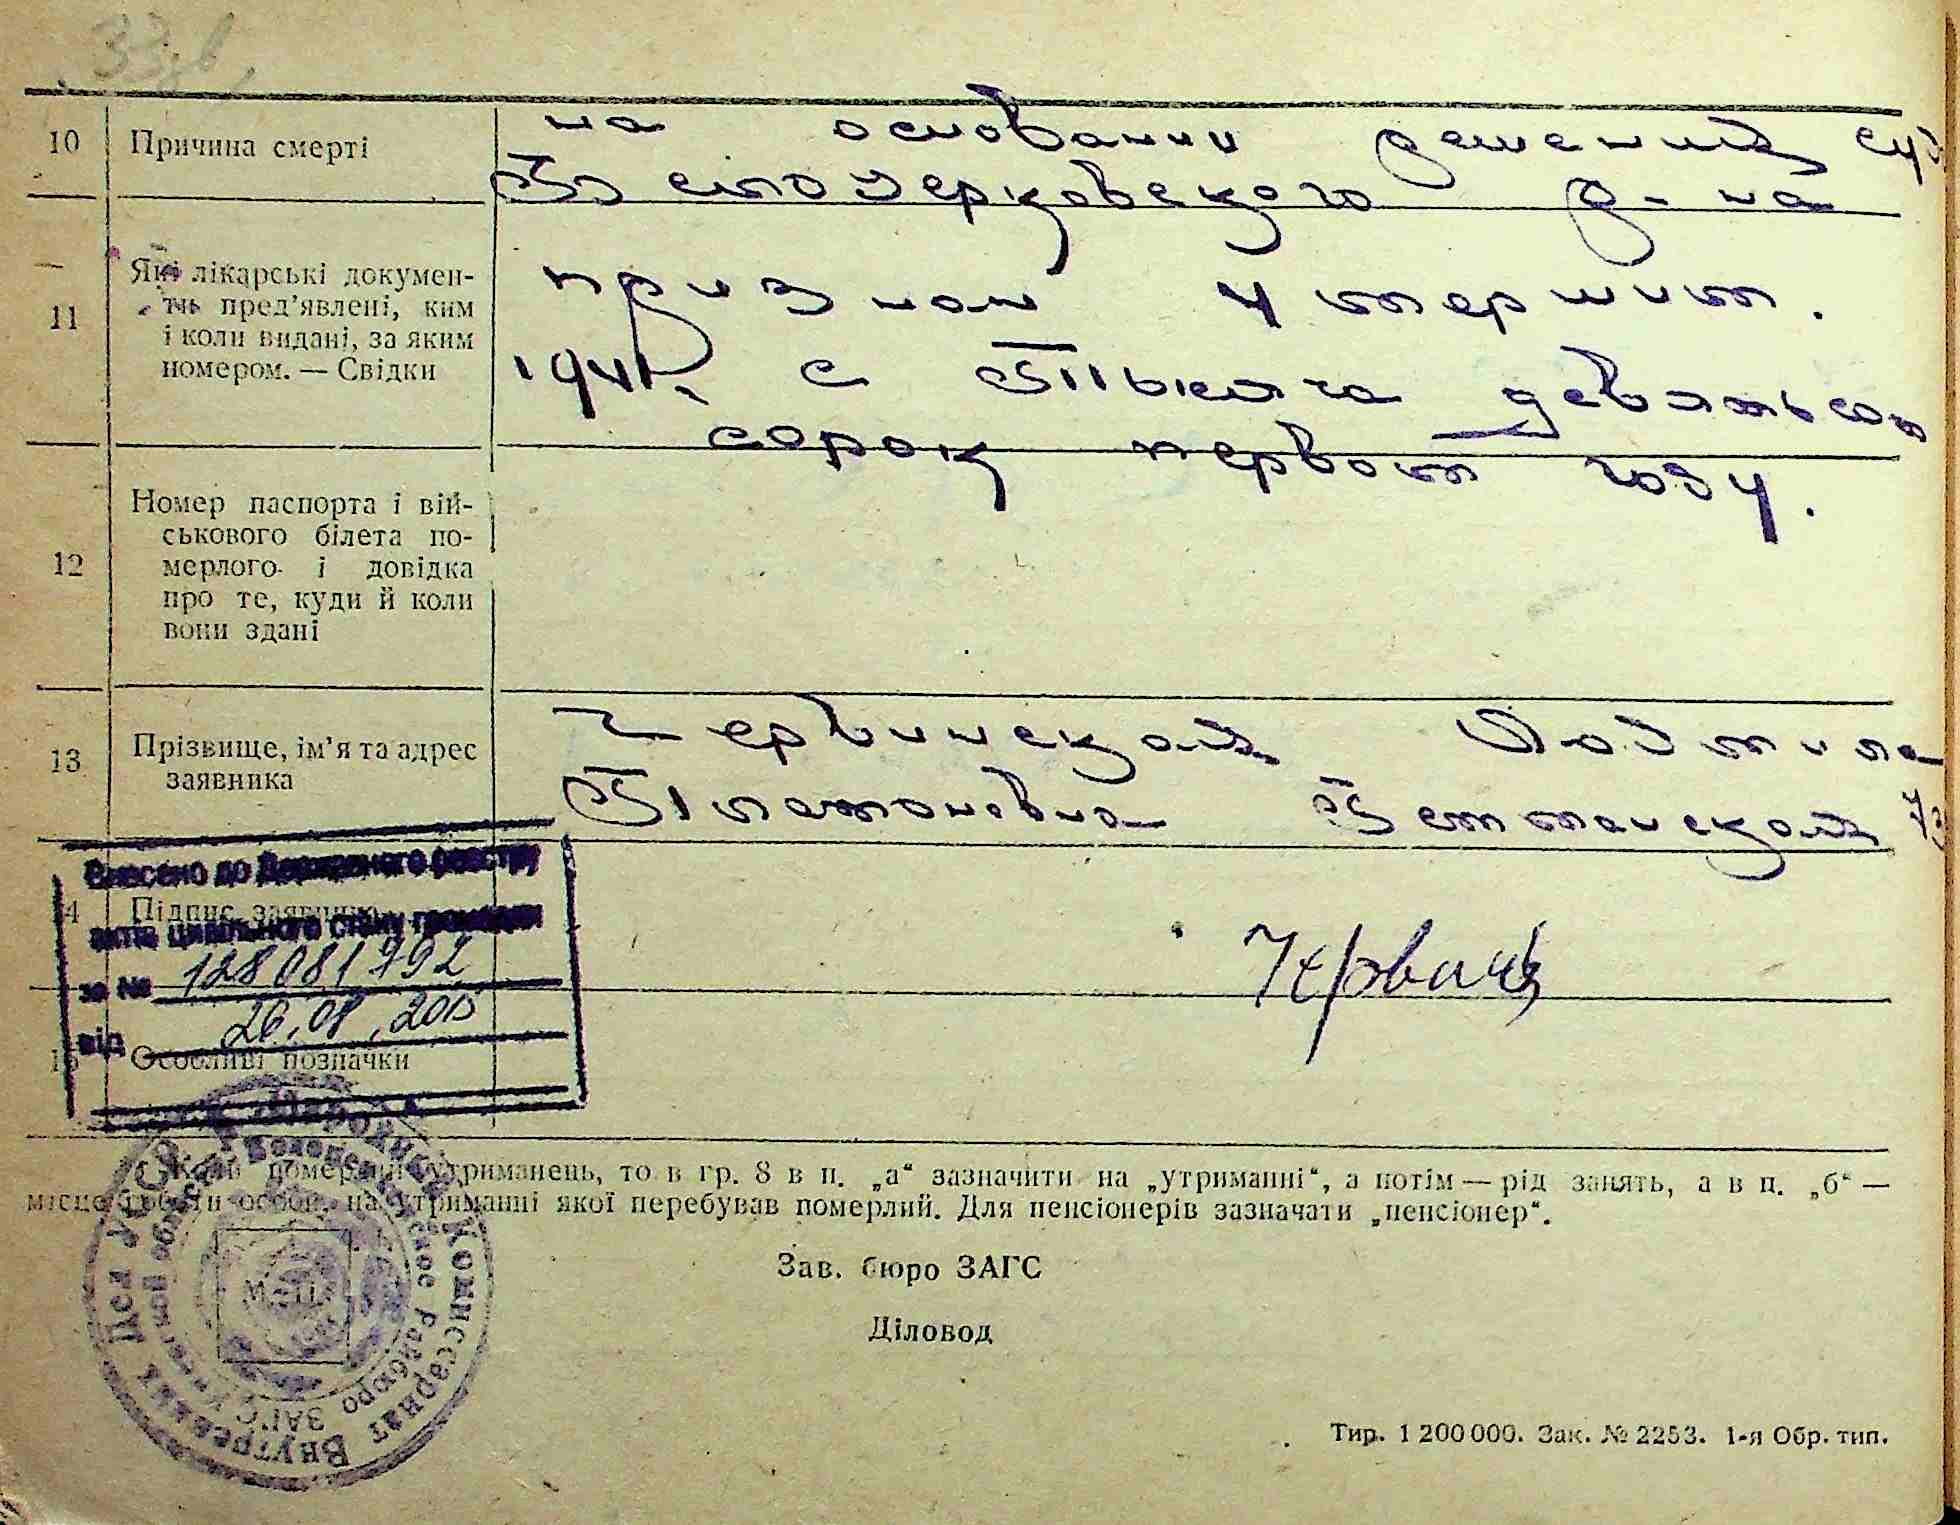 33
10 Причина смерті
на основании решения суд
Белоцерковского р-на
11 Які лікарські докумен-
ти пред’явлені, ким
і коли видані, за яким
номером. — Свідки
признан умершим.
1941 г. с Тысяча девятьсот
сорок первом году.
12 Номер паспорта і вій-
ськового білета по-
мерлого і довідка
про те, куди й коли
вони здані
13 Прізвище, ім’я та адрес
заявника
Червинская Людмила
Платоновна
14 Підпис заявника
Внесено до Державного реєстру
актів цивільного стану громадян
за № 128081792
від
15 Особливі позначки
Коли померлий утриманець, то в гр. 8 в п. „а“ зазначити на „утриманні“, а потім — рід занять, а в п. „б“ —
місце роботи особи, на утриманні якої перебував померлий. Для пенсіонерів зазначати „пенсіонер“.
Народний Комиссариат Внутренних Дел УССР
райбюро ЗАГС
М. П.
Зав. бюро ЗАГС
Діловод
Тир. 1 200 000. Зак. № 2253. 1-я Обр. тип.